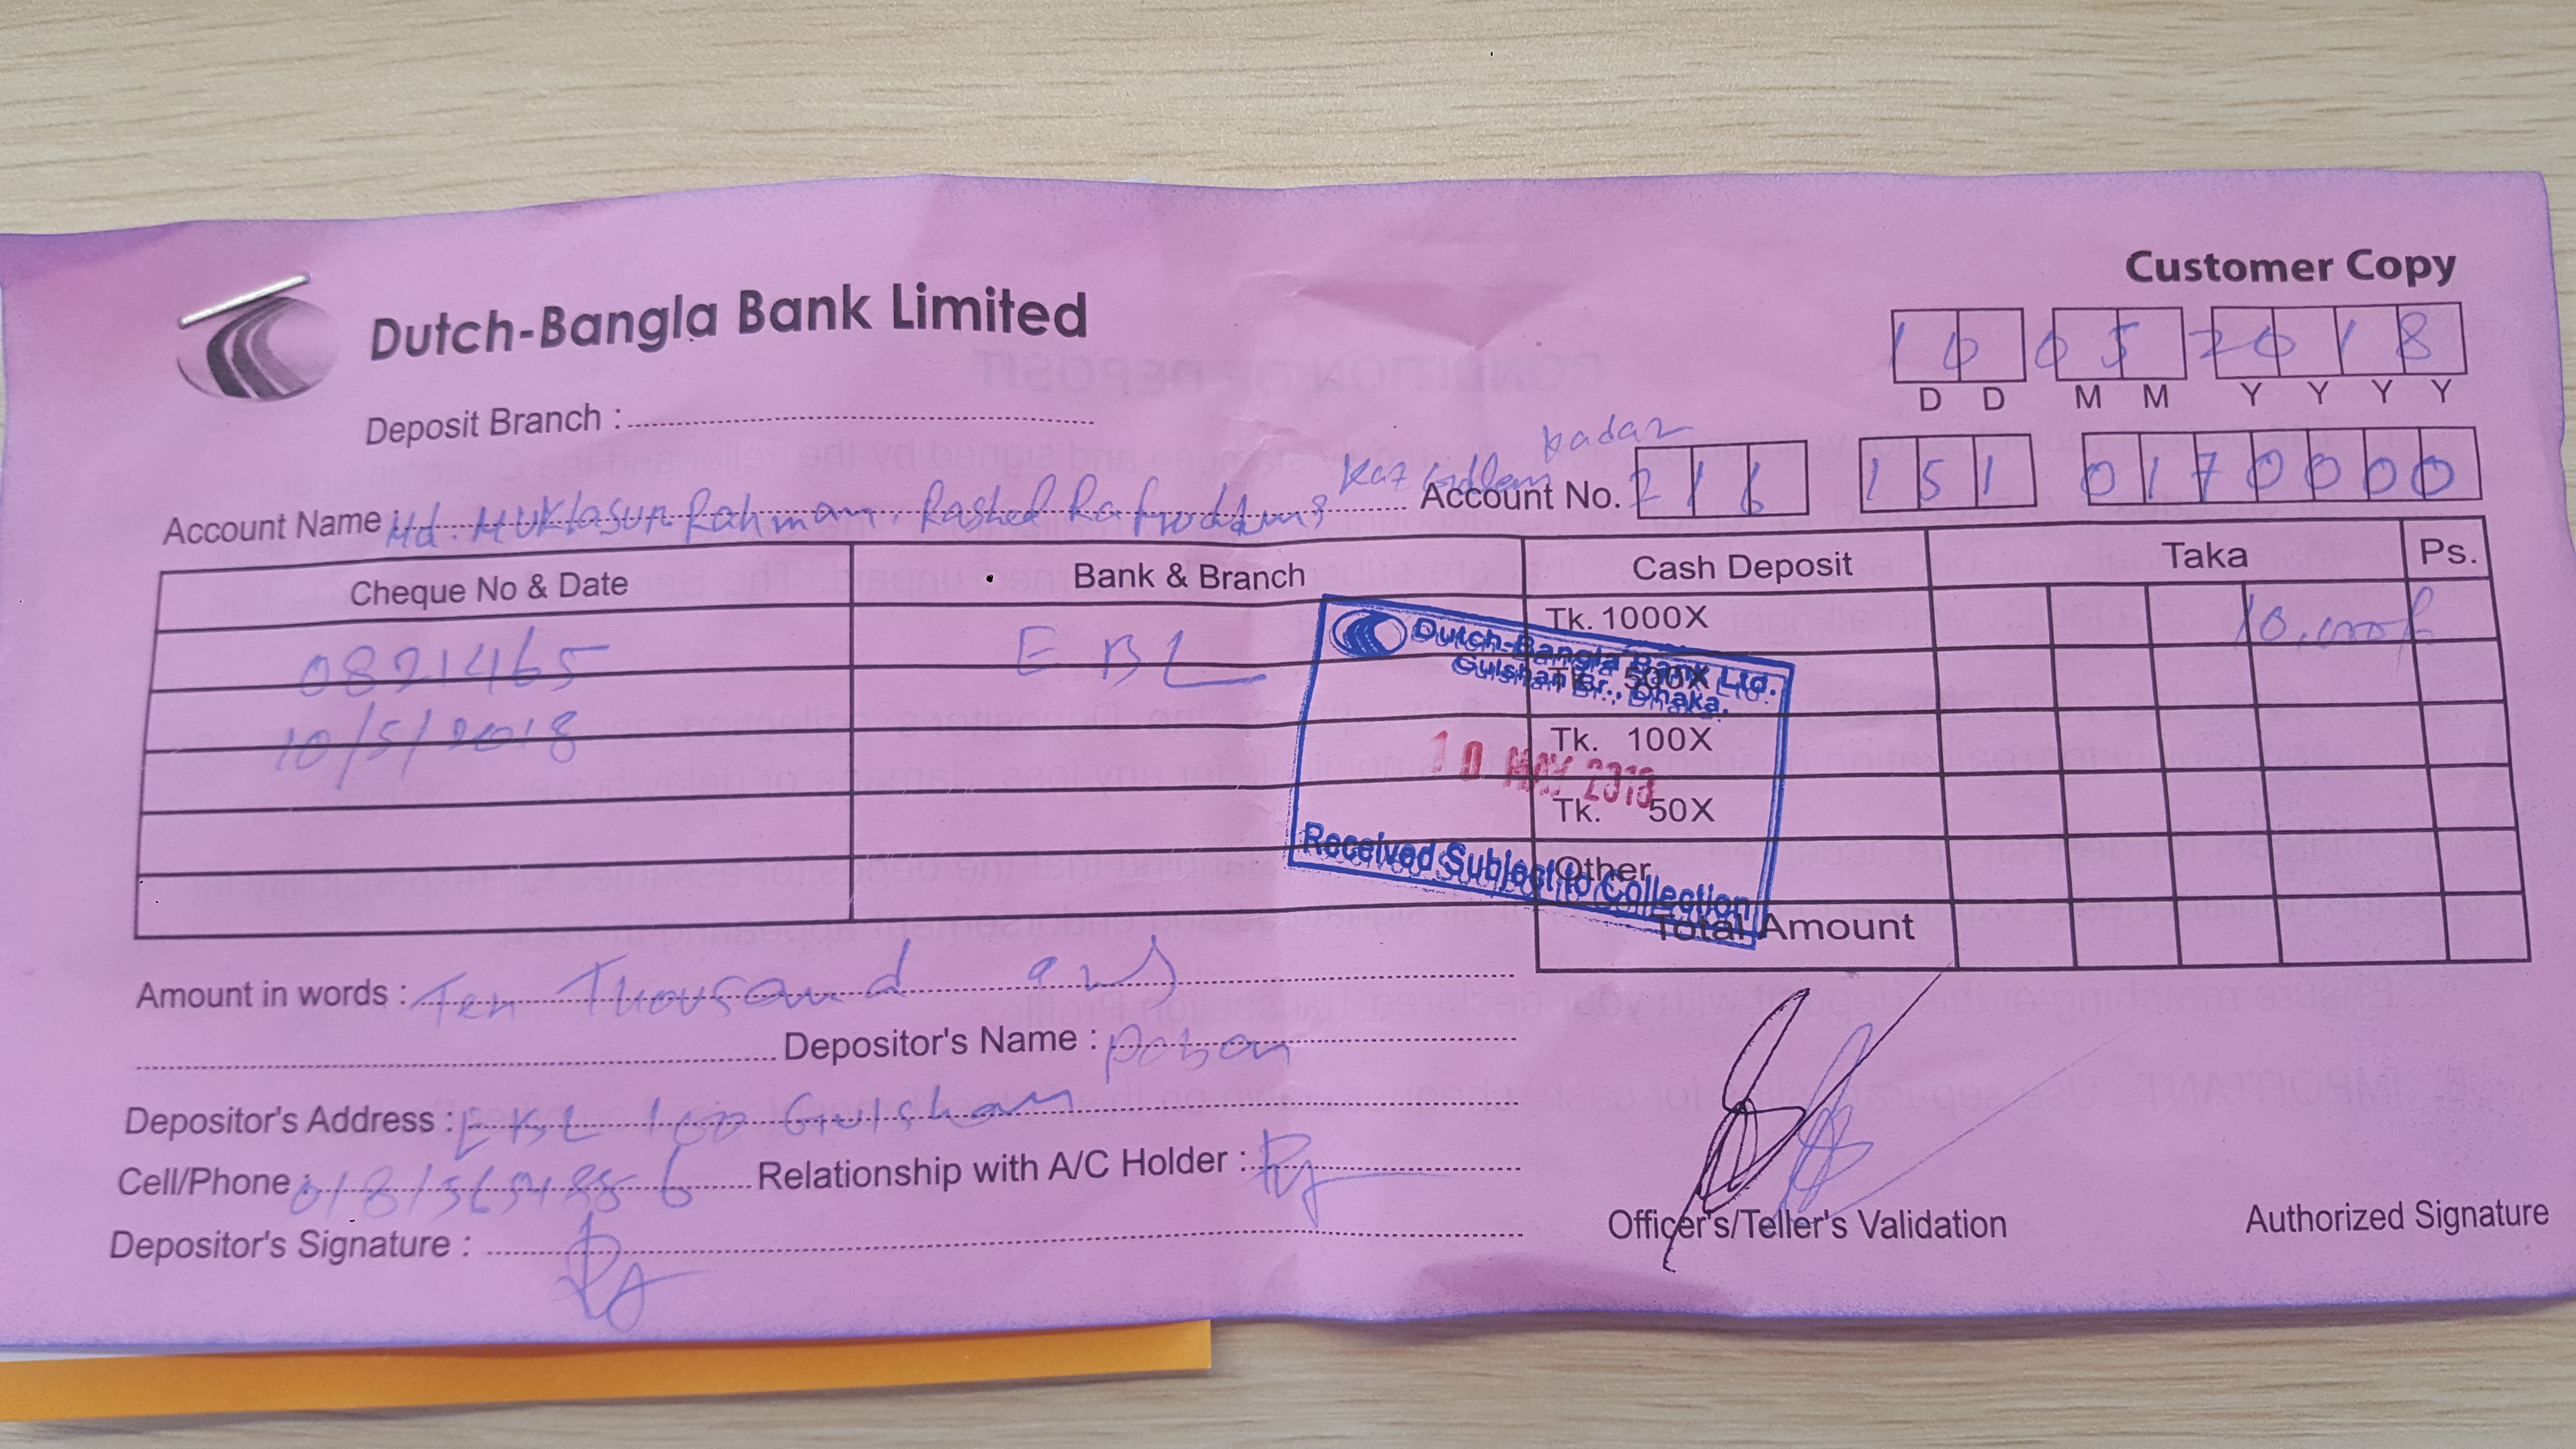 Dutch-Bangla Bank Limited
Customer Copy
10 05 2018
D D M M Y Y Y Y
Deposit Branch :
Account Name Md. Rahman, Rashed
Account No. 216 151 0170000
Cheque No & Date Bank & Branch Cash Deposit Taka Ps.
0821465 EBL Tk. 1000X 10,000/-
10/5/2018 Tk. 500X
Tk. 100X
Tk. 50X
Other
Total Amount
Dutch-Bangla Bank Ltd.
Gulshan Br., Dhaka.
10 MAY 2018
Received Subject to Collection
Amount in words : Ten Thousand only
Depositor's Name :
Depositor's Address : Gulshan
Cell/Phone : Relationship with A/C Holder :
Depositor's Signature :
Officer's/Teller's Validation
Authorized Signature